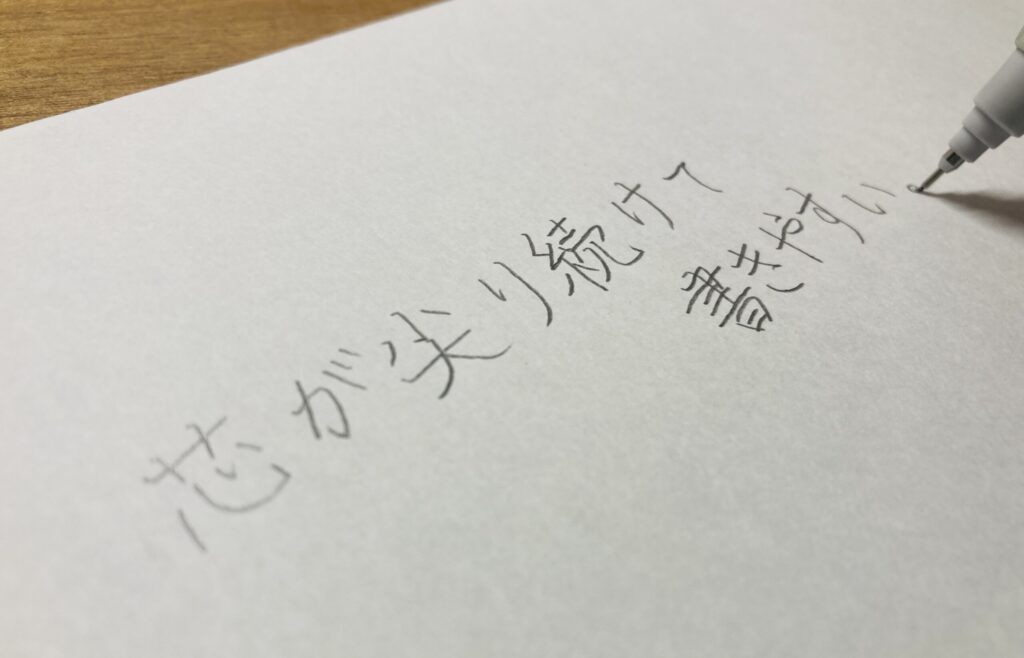 芯が尖り続けて
書きやすい。